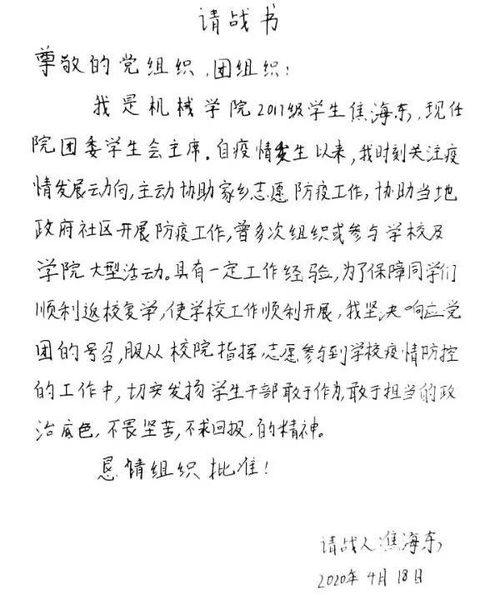 请战书
尊敬的党组织、团组织：
我是机械学院2017级学生焦海东，现任
院团委学生会主席。自疫情发生以来，我时刻关注疫
情发展动向，主动协助家乡志愿防疫工作，协助当地
政府社区开展防疫工作，曾多次组织或参与学校及
学院大型活动。具有一定工作经验，为了保障同学们
顺利返校复学，使学校工作顺利开展，我坚决响应党
团的号召，服从校院指挥，志愿参与到学校疫情防控
的工作中，切实发扬学生干部敢于作为，敢于担当的政
治底色，不畏坚苦，不求回报，的精神。
恳情组织批准！
请战人：焦海东
2020年4月18日